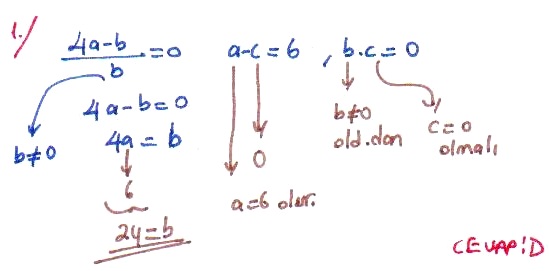 1./
4a-b/b = 0 a-c = 6 , b.c = 0
4a-b=0
b≠0 4a = b
b≠0 old.dan
c=0 olmalı
6 0
a=6 olur.
24=b
CEVAP:D